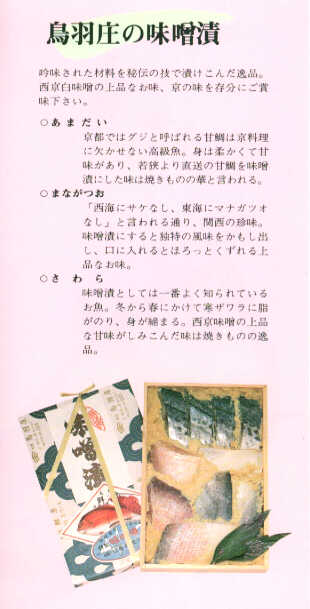 鳥羽庄の味噌漬
吟味された材料を秘伝の技で漬けこんだ逸品。
西京白味噌の上品なお味、京の味を存分にご賞
味下さい。
○あまだい
京都ではグジと呼ばれる甘鯛は京料理
に欠かせない高級魚。身は柔かくて甘
味があり、若狭より直送の甘鯛を味噌
漬にした味は焼きものの華と言われる。
○まながつお
「西海にサケなし、東海にマナガツオ
なし」と言われる通り、関西の珍味。
味噌漬にすると独特の風味をかもし出
し、口に入れるとほろっとくずれる上
品なお味。
○さわら
味噌漬としては一番よく知られている
お魚。冬から春にかけて寒ザワラに脂
がのり、身が締まる。西京味噌の上品
な甘味がしみこんだ味は焼きものの逸
品。
味噌漬